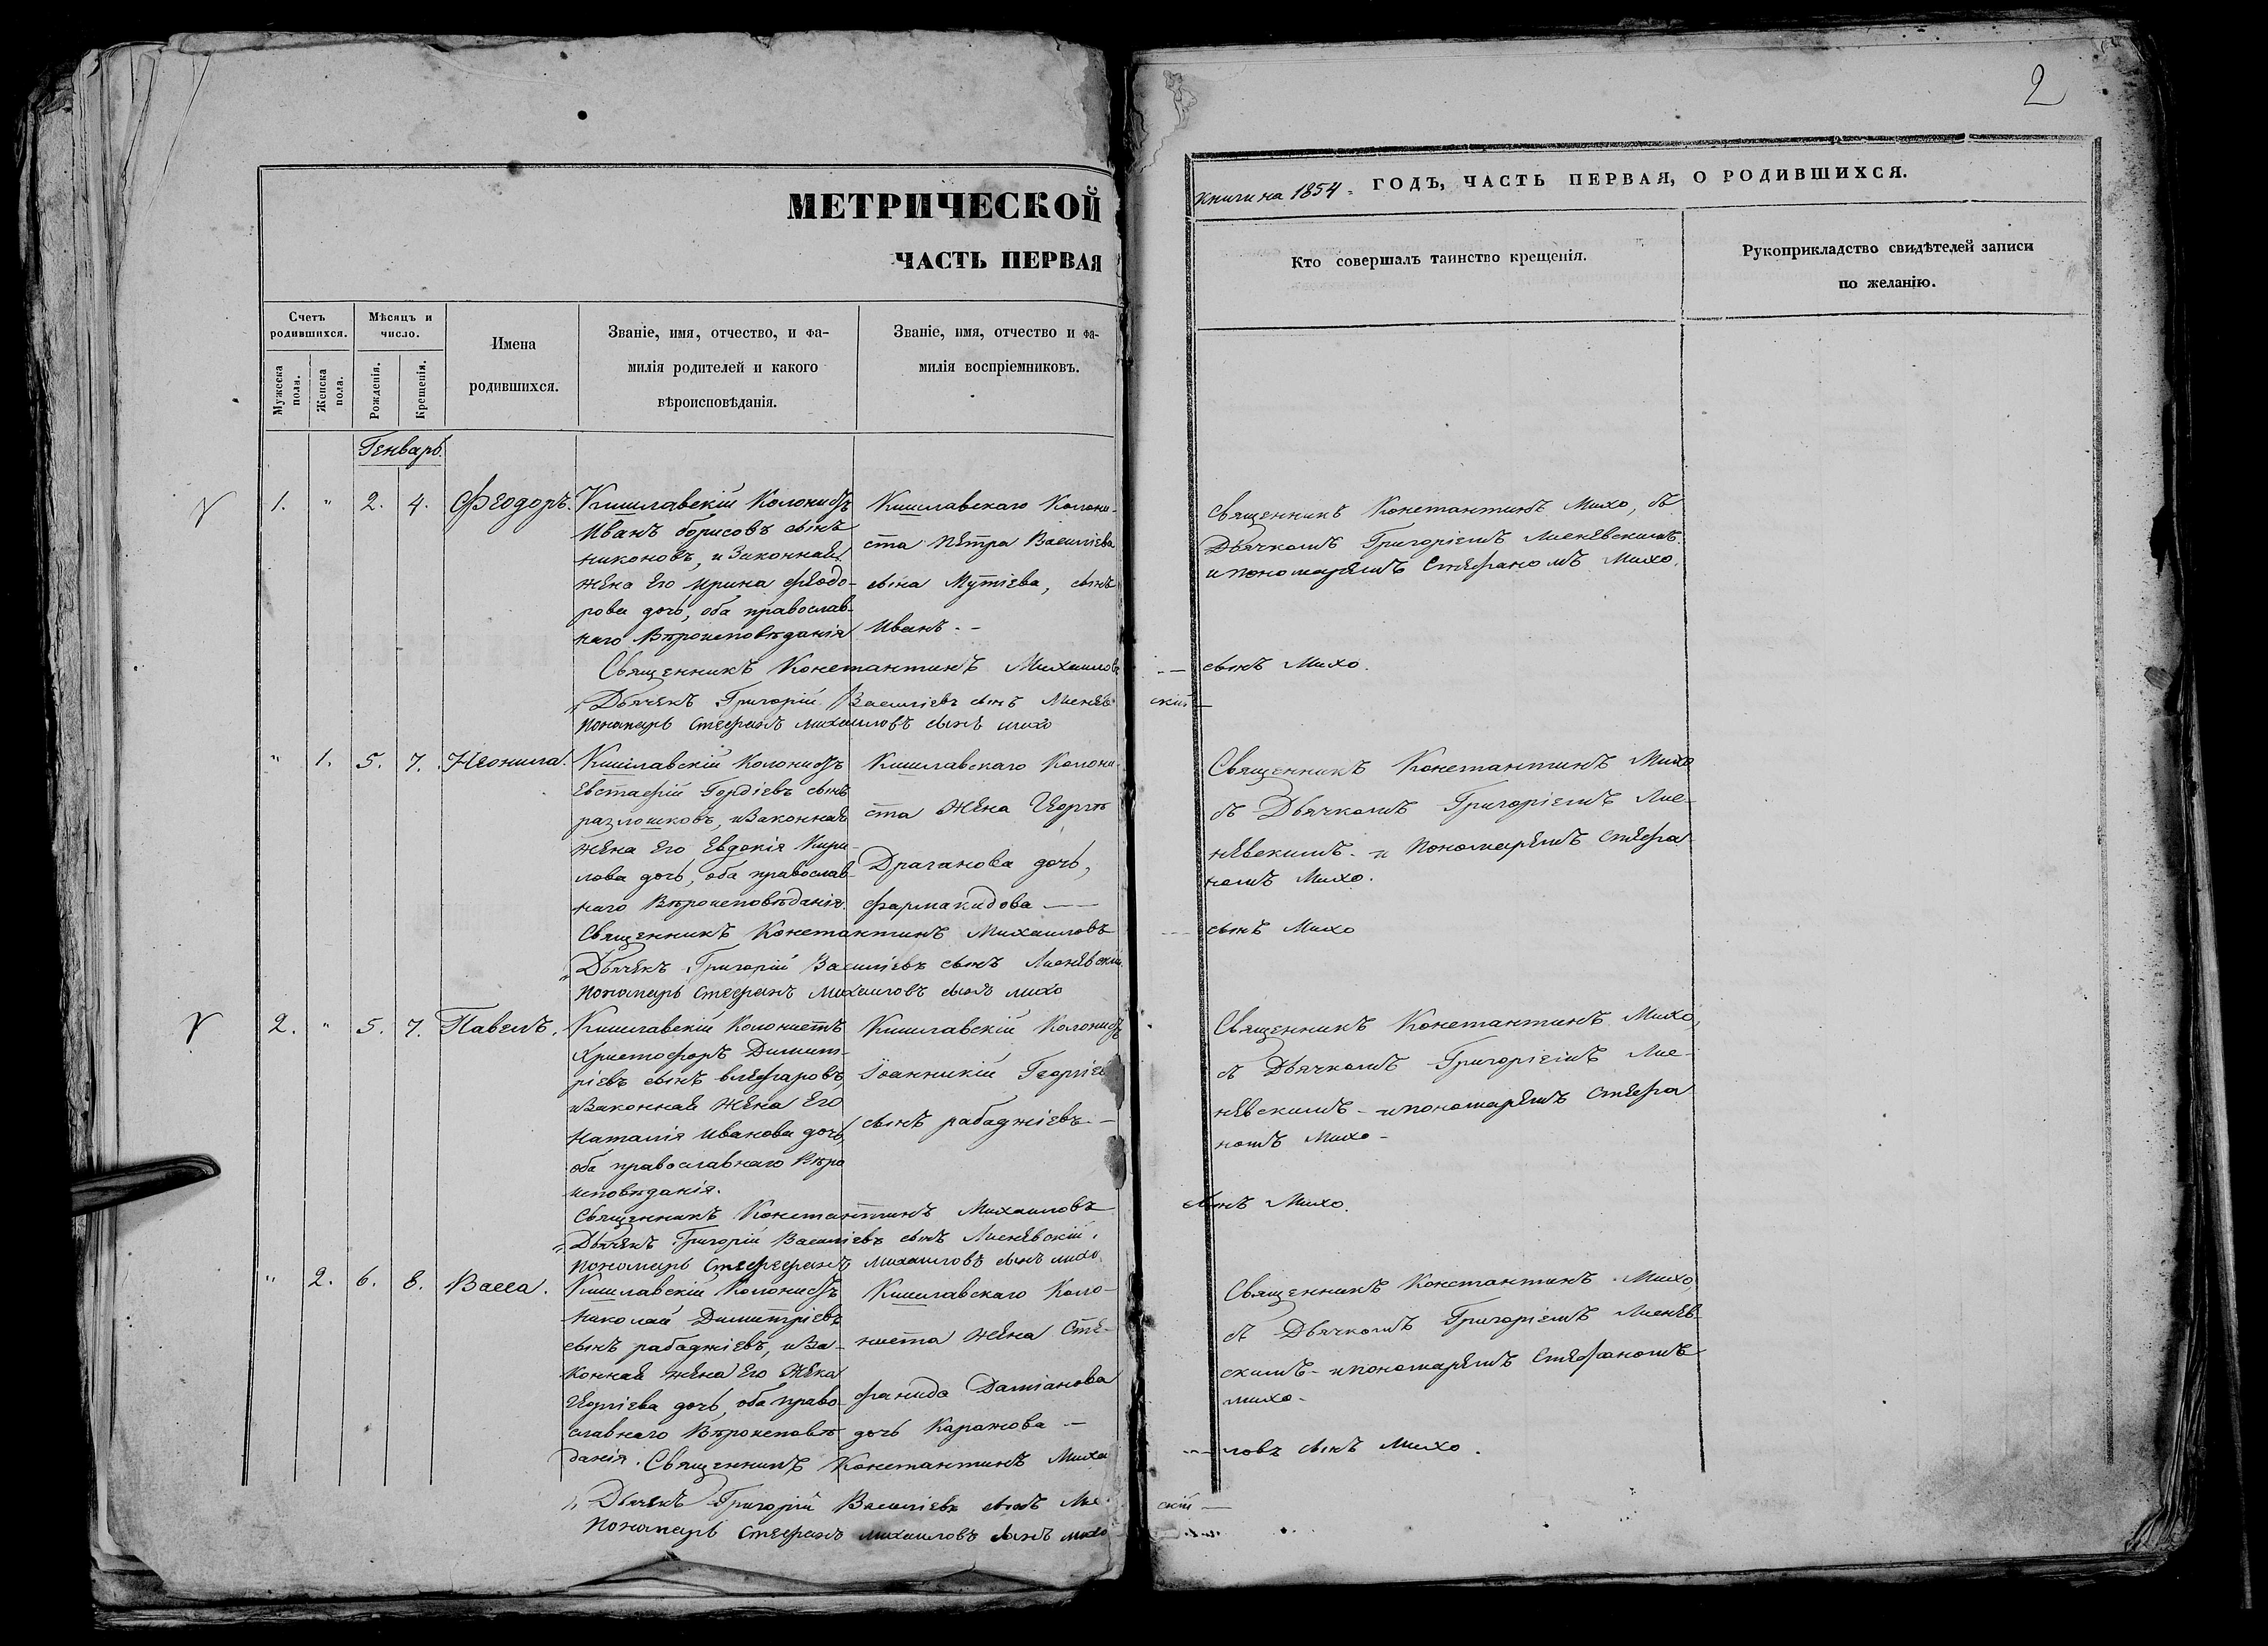 2
МЕТРИЧЕСКОЙ
ЧАСТЬ ПЕРВАЯ
книги на 1854 = ГОДЪ, ЧАСТЬ ПЕРВАЯ, О РОДИВШИХСЯ.
Счетъ родившихся.
Мужеска пола.
Женска пола.
Мѣсяцъ и число.
Рожденія.
Крещенія.
Имена
родившихся.
Званіе, имя, отчество, и фа-
милія родителей и какого
вѣроисповѣданія.
Званіе, имя, отчество и фа-
милія воспріемниковъ.
Кто совершалъ таинство крещенія.
Рукоприкладство свидѣтелей записи
по желанію.
Генварь.
1. " 2. 4. Феодоръ.
Кишлавскій Колонистъ
Иванъ борисовъ сынъ
никоновъ, и Законная
жена Его ирина феодо-
рова дочь, оба православ-
наго Вѣроисповѣданія
Кишлавскаго Колони-
ста Петра Василіева
сына Мутіева, сынъ
Иванъ. -
Священникъ Константинъ Михо, съ
Дьячкомъ Григоріемъ Лисневскимъ
и пономаремъ Стефаномъ Михо.
Священникъ Константинъ Михаиловъ — сынъ Михо.
Дьячекъ Григорій Василіевъ сынъ Лиснев-скій —
Пономарь Стефанъ михаиловъ сынъ михо
" 1. 5. 7. Неонила.
Кишлавскій Колонистъ
Евстафій Гордіевъ сынъ
разлошковъ, и Законная
жена Его Евдокія Кири-
лова дочь, оба православ-
наго Вѣроисповѣданія.
Кишлавскаго Колони-
ста Жена Георгія
Драганова дочь,
фармакидова —
Священникъ Константинъ Михо
съ Дьячкомъ Григоріемъ Лис-
невскимъ - и Пономаремъ Стефа-
номъ Михо.
Священникъ Константинъ Михаиловъ — сынъ Михо
Дьячекъ Григорій Василіевъ сынъ Лисневскій
Пономарь Стефанъ Михаиловъ сынъ михо
2. " 5. 7. Павелъ.
Кишлавскій Колонистъ
Христофоръ Димит-
ріевъ сынъ влефаровъ
и Законная Жена Его
Наталія Иванова дочь,
оба православнаго Вѣро
исповѣданія.
Кишлавскій Колонистъ
Іоанникій Георгіев
сынъ рабаджіевъ. -
Священникъ Константинъ Михо,
съ Дьячкомъ Григоріемъ Лис-
невскимъ - и пономаремъ Стефа
номъ Михо -
Священникъ Константинъ Михаиловъ сынъ Михо.
Дьячекъ Григорій Василіевъ сынъ Лисневскій,
Пономарь Стефанъ михаиловъ сынъ михо
" 2. 6. 8. Васса.
Кишлавскій Колонистъ
Николай Димитріевъ
сынъ рабаджіевъ, и За-
конная жена Его Жека
Георгіева дочь, оба право-
славнаго Вѣроисповѣ
данія.
Кишлавскаго Коло-
ниста Жена Сте-
фанида Даміанова
дочь Каражова —
Священникъ Константинъ Михо,
съ Дьячкомъ Григоріемъ Лиснев-
скимъ - и пономаремъ Стефаномъ
михо -
Священникъ Константинъ Михаи — ловъ сынъ Михо.
Дьячекъ Григорій Василіевъ сынъ Лис скій —
Пономарь Стефанъ михаиловъ сынъ михо